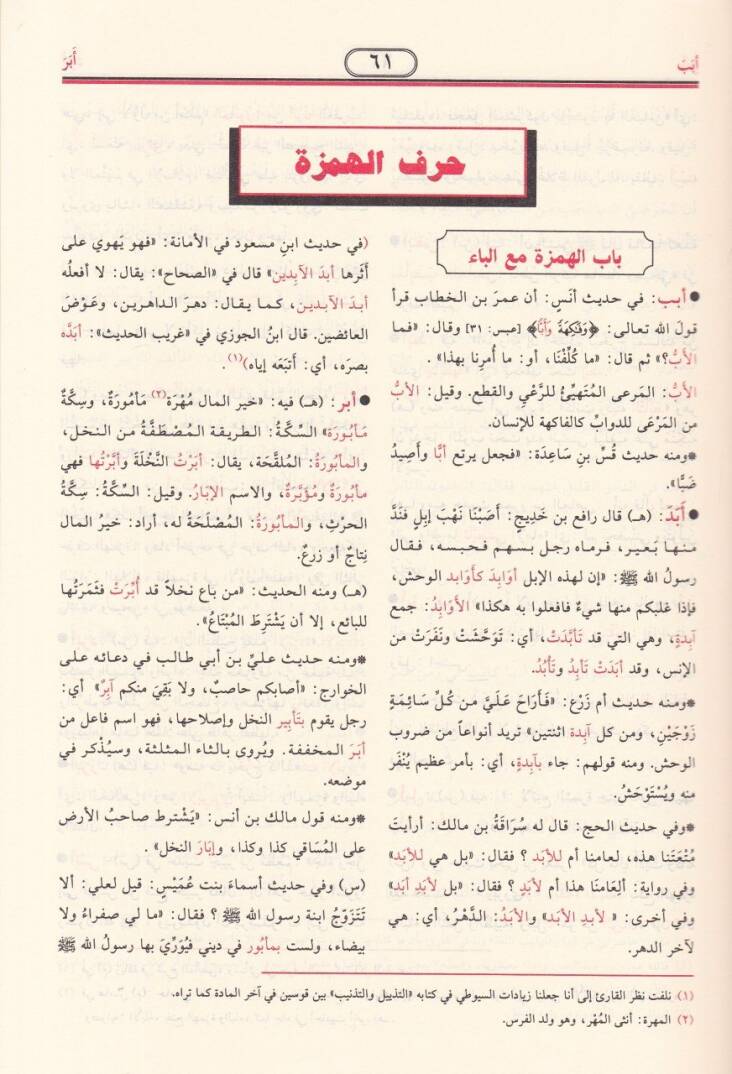 أبَبَ
٦١
أبَرَ
حرف الهمزة
باب الهمزة مع الباء
● أبب: في حديث أنَسٍ: أن عمرَ بن الخطاب قرأ
قولَ الله تعالى: ﴿وَفَٰكِهَةً وَأَبًّا﴾ [عبس: ٣١] وقال: «فما
الأَبُّ؟» ثم قال: «ما كُلِّفْنَا، أو: ما أُمِرنا بهذا».
الأبُّ: المَرعى المُتَهيِّئُ للرَّعْيِ والقطع. وقيل: الأبُّ
من المَرْعَى للدوابِّ كالفاكهة للإنسان.
*ومنه حديث قُسّ بنِ سَاعِدَة: «فجعل يرتع أبًّا وأَصِيدُ
ضَبًّا».
● أَبَدَ: (هـ) قال رافع بن خَدِيجٍ: أصَبْنَا نَهْبَ إبلٍ فَنَدَّ
منها بَعير، فرماه رجل بسهم فحبسه، فقال
رسولُ الله ﷺ: «إن لهذه الإبل أوَابِدَ كَأَوَابد الوحش،
فإذا غلبكم منها شيءٌ فافعلوا به هكذا» الأَوَابِدُ: جمع
آبِدةٍ، وهي التي قد تَأَبَّدَتْ، أي: تَوَحَّشَتْ ونَفَرَتْ من
الإنس، وقد أَبَدَتْ تَأبِدُ وتَأْبُدُ.
*ومنه حديث أم زَرْع: «فَأَرَاحَ عَلَيَّ من كُلِّ سَائِمَةٍ
زَوْجَيْنِ، ومن كل آبِدة اثنتين» تريد أنواعاً من ضروب
الوحش. ومنه قولهم: جاء بآبِدةٍ، أي: بأمر عظيم يُنْفَر
منه ويُسْتَوْحَشُ.
*وفي حديث الحج: قال له سُرَاقَةُ بن مالك: أرأيتَ
مُتْعَتَنا هذه، لعامنا أم لِلأَبَد ؟ فقال: «بل هي لِلأَبَدِ»
وفي رواية: أَلِعَامَنَا هذا أم لأَبَدٍ ؟ فقال: «بل لأَبَدِ أَبَدٍ»
وفي أخرى: « لأبدِ الأبَد» والأَبَدُ: الدَّهْرُ، أي: هي
لآخر الدهر.
(في حديث ابنِ مسعود في الأمانة: «فهو يَهوي على
أثَرها أبدَ الآبِدِين» قال في «الصحاح»: يقال: لا أفعلُه
أبدَ الآبـديـن، كـما يـقـال: دهـرَ الداهرين، وعَـوْضَ
العائضين. قال ابنُ الجوزي في «غريب الحديث»: أَبَدَّه
بصرَه، أي: أَتبَعَه إياه)(١).
● أبر: (هـ) فيه: «خير المال مُهْرَة(٢) مَأمُورَةٌ، وسِكَّةٌ
مَأبُورَة» السِّكَّةُ: الطريقة المُصْطَفَّةُ من النخل،
والمأبُورَةُ: المُلقَحَة، يقال: أبَرْتُ النَّخْلَةَ وأَبَّرْتُها فهي
مأبورَةٌ ومُؤَبَّرَةٌ، والاسم الإبَارُ. وقيل: السِّكَّةُ: سِكَّةُ
الحرْثِ، والمأبُورَةُ: المُصْلَحَةُ له، أراد: خيرُ المال
نِتاجٌ أو زرعٌ.
(هـ) ومنه الحديث: «من باع نخلاً قد أُبِّرَتْ فَثَمَرَتُها
للبائع، إلا أن يَشْتَرِطَ المُبْتَاعُ».
*ومنه حديث عليّ بن أبي طالب في دعائه على
الخوارج: «أصابكم حاصبٌ، ولا بَقِيَ منكم آبِرٌ» أي:
رجل يقوم بتَأبِير النخل وإصلاحها، فهو اسم فاعل من
أبَرَ المخففة. ويُروى بالثاء المثلثة، وسيُذكر في
موضعه.
*ومنه قول مالك بن أنس: «يَشْترط صاحبُ الأرض
على المُسَاقي كذا وكذا، وإبَارَ النخل».
(س) وفي حديث أسماءَ بنت عُمَيْسٍ: قيل لعلي: ألا
تَتَزَوَّجُ ابنة رسول الله ﷺ ؟ فقال: «ما لي صفراءُ ولا
بيضاء، ولست بمأبُور في ديني فيُوَرِّيَ بها رسولُ الله ﷺ
(١) نلفت نظر القارئ إلى أنا جعلنا زيادات السيوطي في كتابه «التذييل والتذنيب» بين قوسين في آخر المادة كما تراه.
(٢) المهرة: أنثى المُهْر، وهو ولد الفرس.